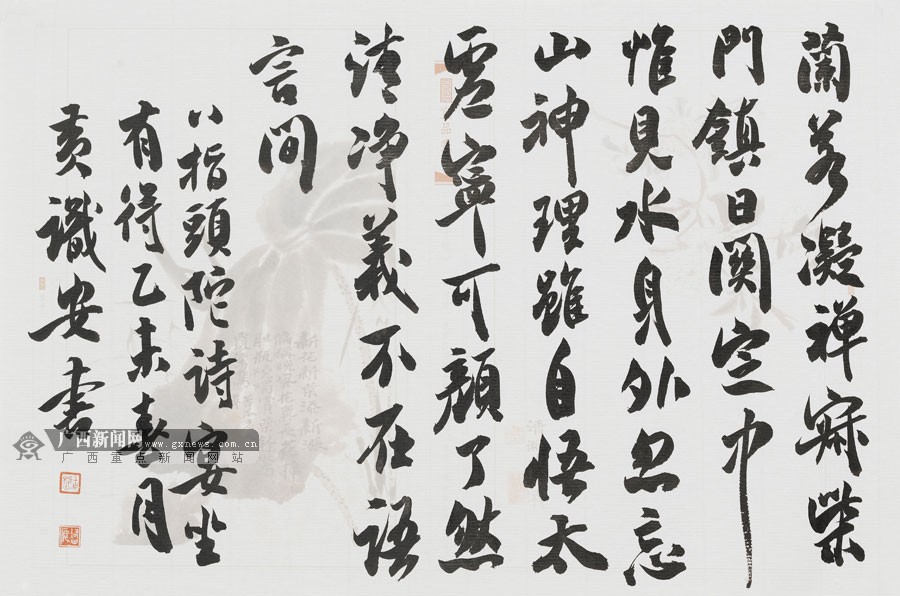 蘭若凝禅寂柴
門鎮日關定中
惟見水身外忽忘
山神理雖自悟太
虚寧可顔了然
清净義不在語
言間
八指頭陀詩宴坐
有得乙未春月
黄識安書
广西新闻网 www.gxnews.com.cn
广西重点新闻网站